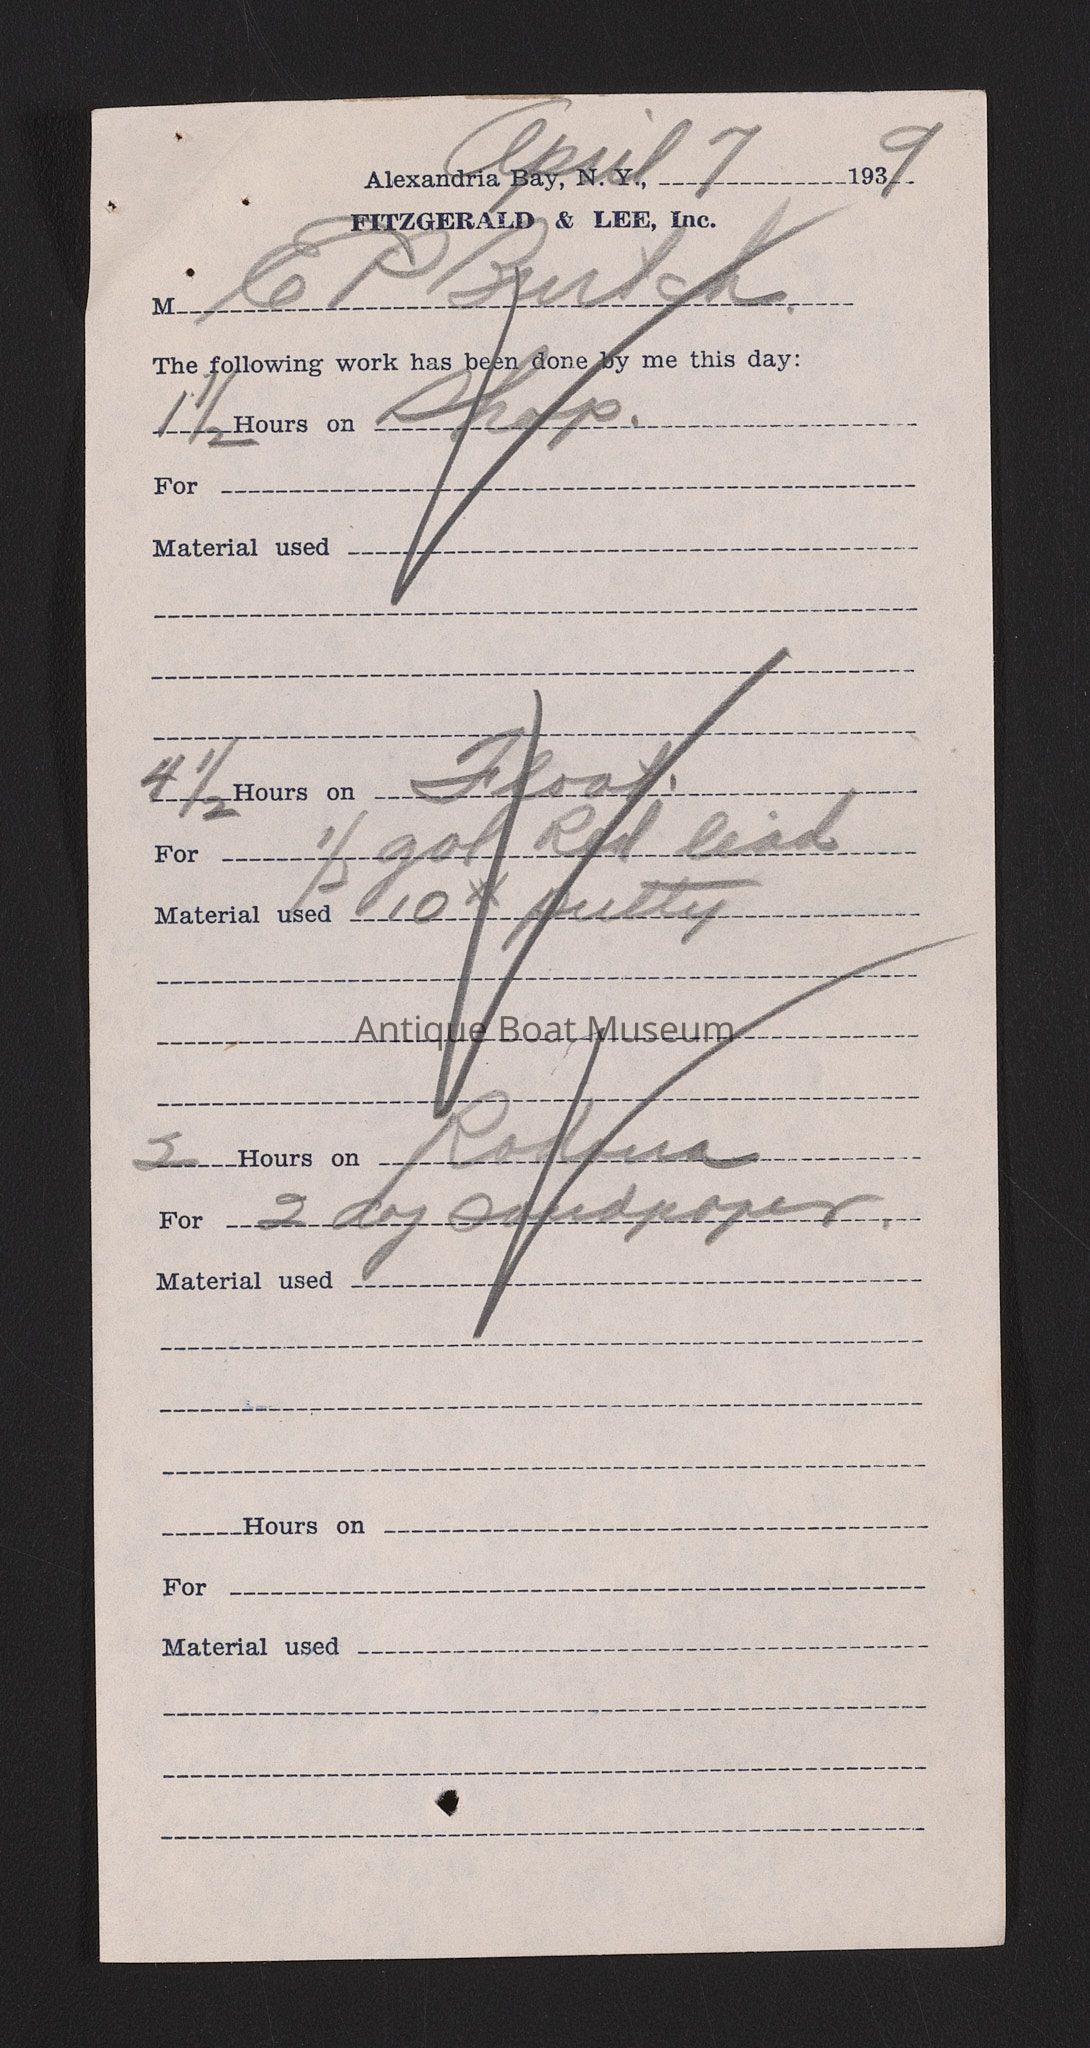 April 7 9
Alexandria Bay, N. Y., 193
FITZGERALD & LEE, Inc.
M E P Burtch.
The following work has been done by me this day:
1 1/2 Hours on Shop.
For
Material used
4 1/2 Hours on Float.
For 1/2 gal Red lead
Material used 10# putty
Antique Boat Museum
2 Hours on
For 2 doz sandpaper.
Material used
Hours on
For
Material used